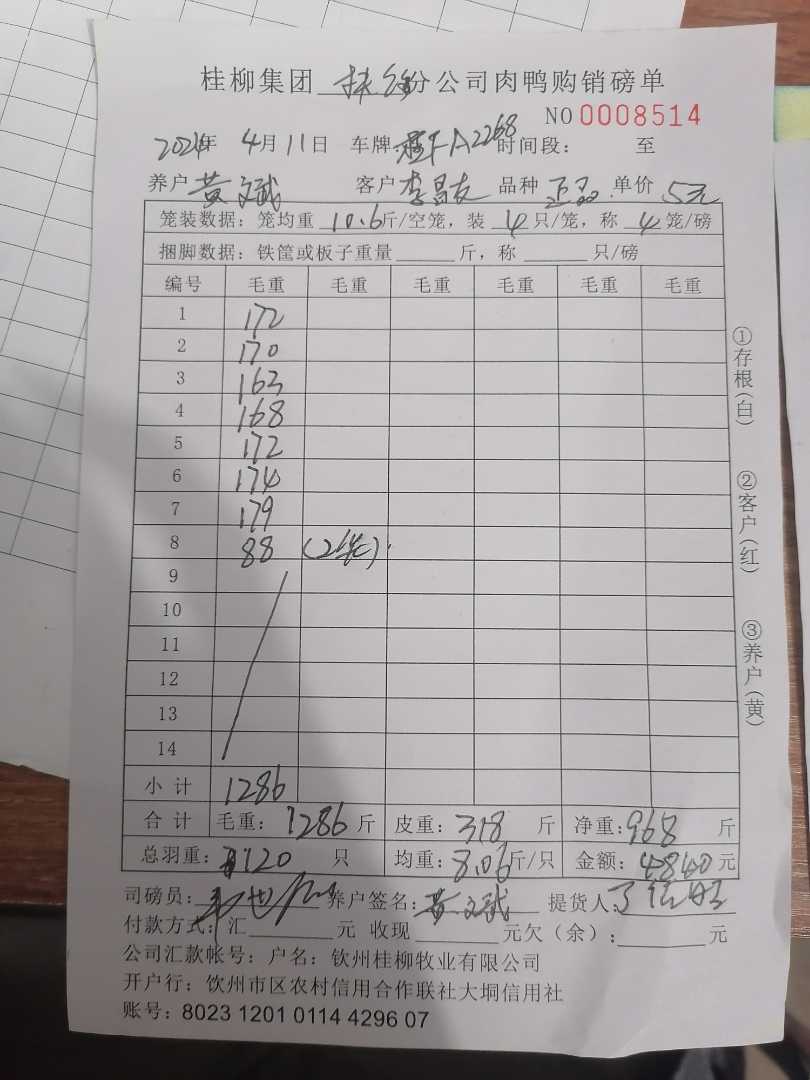 桂柳集团 扶绥分公司肉鸭购销磅单
NO 0008514
2024年 4月11日 车牌:桂FA2268 时间段: 至
养户 黄文斌 客户 李昌友 品种 正品 单价 5元
笼装数据:笼均重 10.6斤/空笼,装 4只/笼,称 4笼/磅
捆脚数据:铁筐或板子重量 斤,称 只/磅
编号 毛重 毛重 毛重 毛重 毛重 毛重
1 172
2 170
3 163
4 168
5 172
6 174
7 179
8 88 (2笼)
9
10
11
12
13
14
小计 1286
合计 毛重:1286斤 皮重:318 斤 净重:968 斤
总羽重:120 只 均重:8.06斤/只 金额:4840元
司磅员: 养户签名:黄文斌 提货人:
付款方式:汇 元 收现 元欠(余): 元
公司汇款帐号:户名:钦州桂柳牧业有限公司
开户行:饮州市区农村信用合作联社大垌信用社
账号:8023 1201 0114 4296 07
①存根(白)
②客户(红)
③养户(黄)